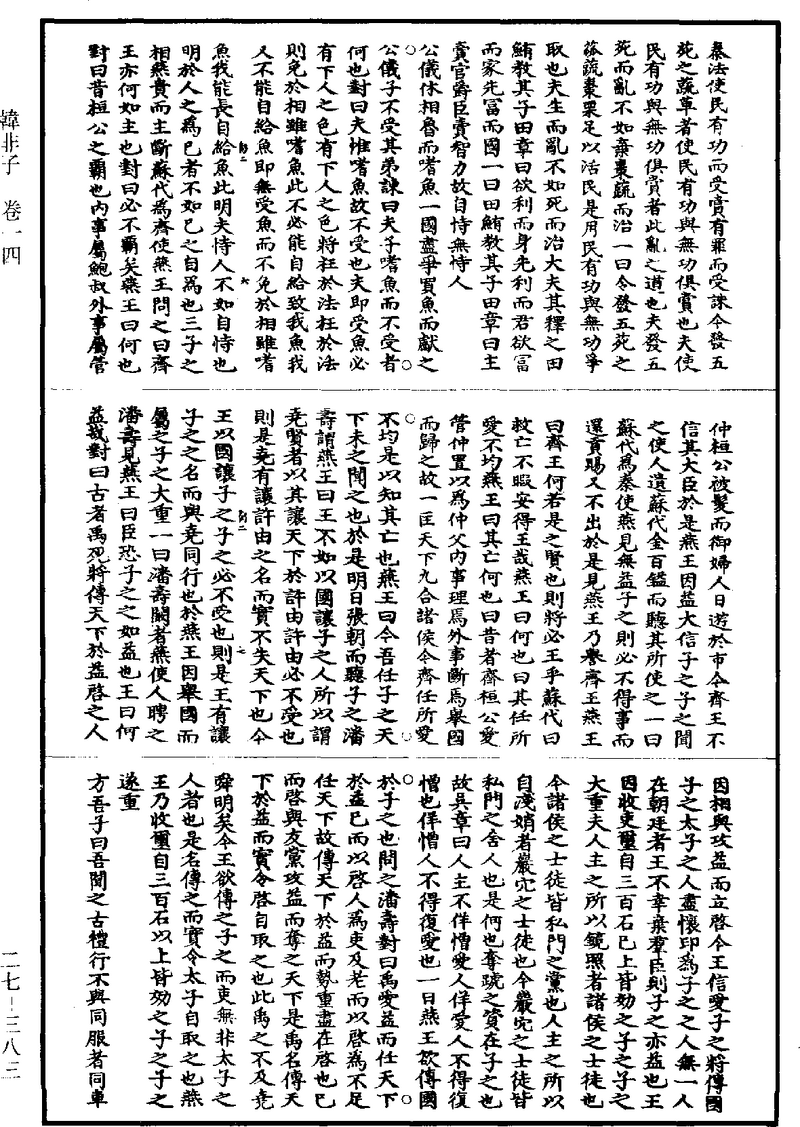 韓非子 卷一四
秦法使民有功而受賞有罪而受誅今發五
苑之蔬草者使民有功與無功俱賞也夫使
民有功與無功俱賞者此亂之道也夫發五
苑而亂不如棄棗蔬而治一曰令發五苑之
蓏蔬棗栗足以活民是用民有功與無功爭
取也夫生而亂不如死而治大夫其釋之田
鮪教其子田章曰欲利而身先利而君欲富
而家先富而國一曰田鮪教其子田章曰主
賣官爵臣賣智力故自恃無恃人
公儀休相魯而嗜魚一國盡爭買魚而獻之
公儀子不受其弟諫曰夫子嗜魚而不受者
何也對曰夫惟嗜魚故不受也夫即受魚必
有下人之色有下人之色將枉於法枉於法
則免於相雖嗜魚此不必能自給致我魚我
又不能自給魚即無受魚而不免於相雖嗜
魚我能長自給魚此明夫恃人不如自恃也
明於人之為己者不如己之自為也三子之
相燕貴而主斷蘇代為齊使燕王問之曰齊
王亦何如主也對曰必不霸矣燕王曰何也
對曰昔桓公之霸也內事屬鮑叔外事屬管
仲桓公被髮而御婦人日遊於市今齊王不
信其大臣於是燕王因益大信子之子之聞
之使人遺蘇代金百鎰而聽其所使之一曰
蘇代為秦使燕見無益子之則必不得事而
還貢賜又不出於是見燕王乃譽齊王燕王
曰齊王何若是之賢也則將必王乎蘇代曰
救亡不暇安得王哉燕王曰何也曰其任所
愛不均燕王曰其亡何也曰昔者齊桓公愛
管仲置以為仲父內事理焉外事斷焉舉國
而歸之故一匡天下九合諸侯今齊任所愛
不均是以知其亡也燕王曰今吾任子之天
下未之聞之也於是明日張朝而聽子之潘
壽謂燕王曰王不如以國讓子之人所以謂
堯賢者以其讓天下於許由許由必不受也
則是堯有讓許由之名而實不失天下也今
王以國讓子之子之必不受也則是王有讓
子之之名而與堯同行也於燕王因舉國而
屬之子之大重一曰潘壽闞者燕使人聘之
潘壽見燕王曰臣恐子之之如益也王曰何
益哉對曰古者禹死將傳天下於益啓之人
因相與攻益而立啓今王信愛子之將傳國
子之太子之人盡懷印為子之之人無一人
在朝廷者王不幸棄群臣則子之亦益也王
因收吏璽自三百石已上皆効之子之子之
大重夫人主之所以鏡照者諸侯之士徒也
今諸侯之士徒皆私門之黨也人主之所以
自淺娋者巖穴之士徒也今巖穴之士徒皆
私門之舍人也是何也奪䟽之資在子之也
故吳章曰人主不佯憎愛人佯愛人不得復
憎也佯憎人不得復愛也一曰燕王欲傳國
於子之也問之潘壽對曰禹愛益而任天下
於益已而以啓人為吏及老而以啓為不足
任天下故傳天下於益而勢重盡在啓也已
而啓與友黨攻益而奪之天下是禹名傳天
下於益而實令啓自取之也此禹之不及堯
舜明矣今王欲傳之子之而吏無非太子之
人者也是名傳之而實令太子自取之也燕
王乃收璽自三百石以上皆効之子之子之
遂重
方吾子曰吾聞之古禮行不與同服者同車
二七-三八三